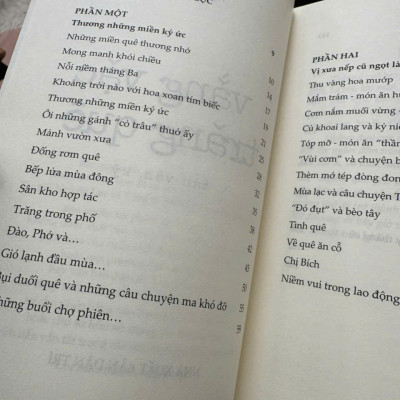 PHẦN MỘT
Thương những miền ký ức
Những miền quê thương nhớ
Mong manh khói chiều
Nỗi niềm tháng Ba
Khoảng trời nào với hoa xoan tím biếc
Thương những miền ký ức
Ôi những gánh "cỏ trâu" thuở ấy
Mảnh vườn xưa
Đống rơm quê
Bếp lửa mùa đông
Sân kho hợp tác
Trăng trong phố
Đào, Phở và...
Gió lạnh đầu mùa...
Bụi duối quê và những câu chuyện ma khó đỡ
Những buổi chợ phiên...
9
10
14
16
18
21
25
28
32
35
38
42
45
50
55
59
PHẦN HAI
Vị xưa nếp cũ ngọt là
Thu vàng hoa mướp
Mắm trám - món ăn
Cơm nắm muối vừng
Củ khoai lang và ký
Tóp mỡ - món ăn "thần
"Vùi cơm" và chuyện b
Thèm mớ tép đòng đon
Mùa lạc và câu chuyện T
"Đó đụt" và bèo tây
Tình quê
Về quê ăn cỗ
Chị Bích
Niềm vui trong lao động